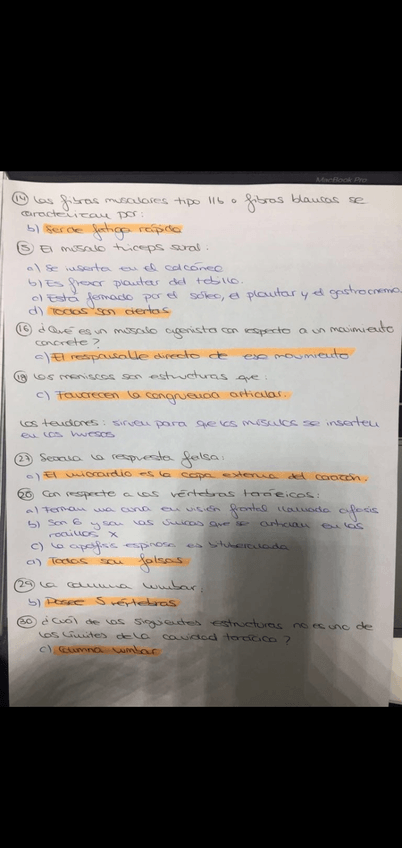 MacBook Pro
14 Las fibras musculares tipo IIb o fibras blancas se
caracterizan por:
b) Ser de fatiga rápida
15 El músculo tríceps sural:
a) Se inserta en el calcáneo
b) Es flexor plantar del tobillo.
c) Está formado por el sóleo, el plantar y el gastrocnemio
d) Todas son ciertas
16 ¿Qué es un músculo agonista con respecto a un movimiento
concreto?
c) El responsable directo de ese movimiento
19 Los meniscos son estructuras que:
c) Favorecen la congruencia articular.
Los tendones: sirven para que los músculos se inserten
en los huesos
27 Señala la respuesta falsa:
a) El miocardio es la capa externa del corazón.
28 Con respecto a las vértebras torácicas:
a) Forman una curva en visión frontal llamada cifosis
b) Son 6 y son las únicas que se articulan en las
costillas x
c) La apófisis espinosa es bituberculada
d) Todas son falsas
29 La columna lumbar:
b) Posee 5 vértebras
30 ¿Cuál de las siguientes estructuras no es uno de
los límites de la cavidad torácica?
c) columna lumbar